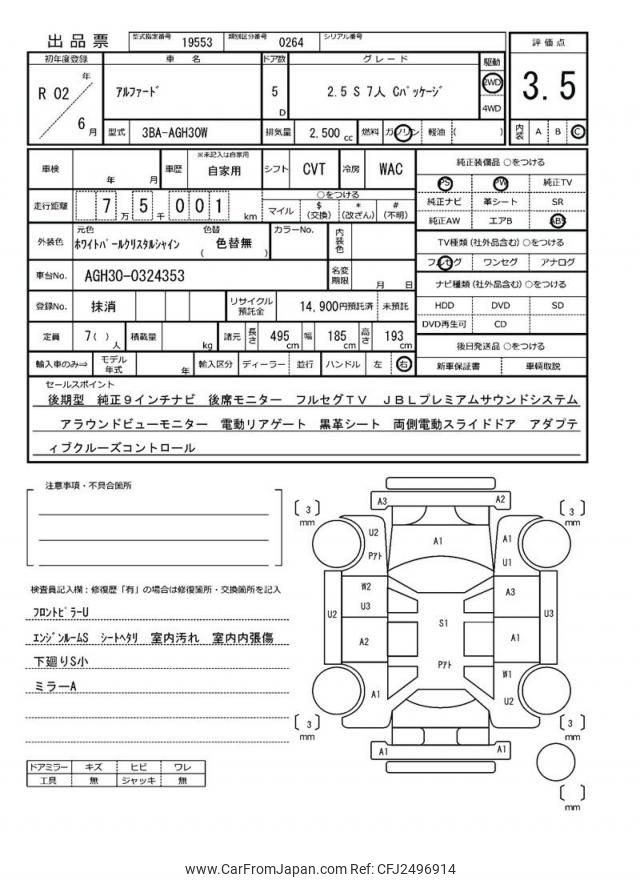 出品票 型式指定番号 19553 類別区分番号 0264 シリアル番号
初年度登録 車 名 ドア数 グレード 駆動 評価点
R 02 年 6 月 アルファード 5 D 2.5 S 7人 Cパッケージ 2WD 4WD 3.5
型式 3BA-AGH30W 排気量 2,500 cc 燃料 ガソリン 軽油 ( ) 内装 A B C
車検 年 月 車歴 ※未記入は自家用 自家用 シフト CVT 冷房 WAC 純正装備品 ○をつける
PS PW 純正TV
走行距離 7 万 5 千 0 0 1 km ○をつける マイル $ (交換) * (改ざん) # (不明) 純正ナビ 革シート SR
純正AW エアB ABS
外装色 元色 ホワイトパールクリスタルシャイン 色替 ( 色替無 ) カラーNo. 内装色 TV種類 (社外品含む) ○をつける
フルセグ ワンセグ アナログ
車台No. AGH30-0324353 名変期限 月 日 ナビ種類 (社外品含む) ○をつける
登録No. 抹消 リサイクル預託金 14,900円預託済 未預託 HDD DVD SD
DVD再生可 CD
定員 7( ) 人 積載量 kg 諸元 長さ 495 cm 幅 185 cm 高さ 193 cm 後日発送品 ○をつける
輸入車のみ⇒ モデル年式 年 輸入区分 ディーラー 並行 ハンドル 左 右 新車保証書 車輌取説
セールスポイント
後期型 純正9インチナビ 後席モニター フルセグTV JBLプレミアムサウンドシステム
アラウンドビューモニター 電動リアゲート 黒革シート 両側電動スライドドア アダプテ
ィブクルーズコントロール
注意事項・不具合箇所
検査員記入欄:修復歴「有」の場合は修復箇所・交換箇所を記入
フロントピラーU
エンジンルームS シートヘタリ 室内汚れ 室内内張傷
下廻りS小
ミラーA
ドアミラー キズ ヒビ ワレ
工具 無 ジャッキ 無
A3 A2
〔 3 〕 mm 〔 3 〕 mm
U2 Pアト A1 A1 U1
W2 U3 A3
U2 S1 U3
A2 A1
Pアト
A1 W1 U2
〔 3 〕 mm 〔 3 〕 mm
A1 A1
〔 〕 mm
www.CarFromJapan.com Ref: CFJ2496914